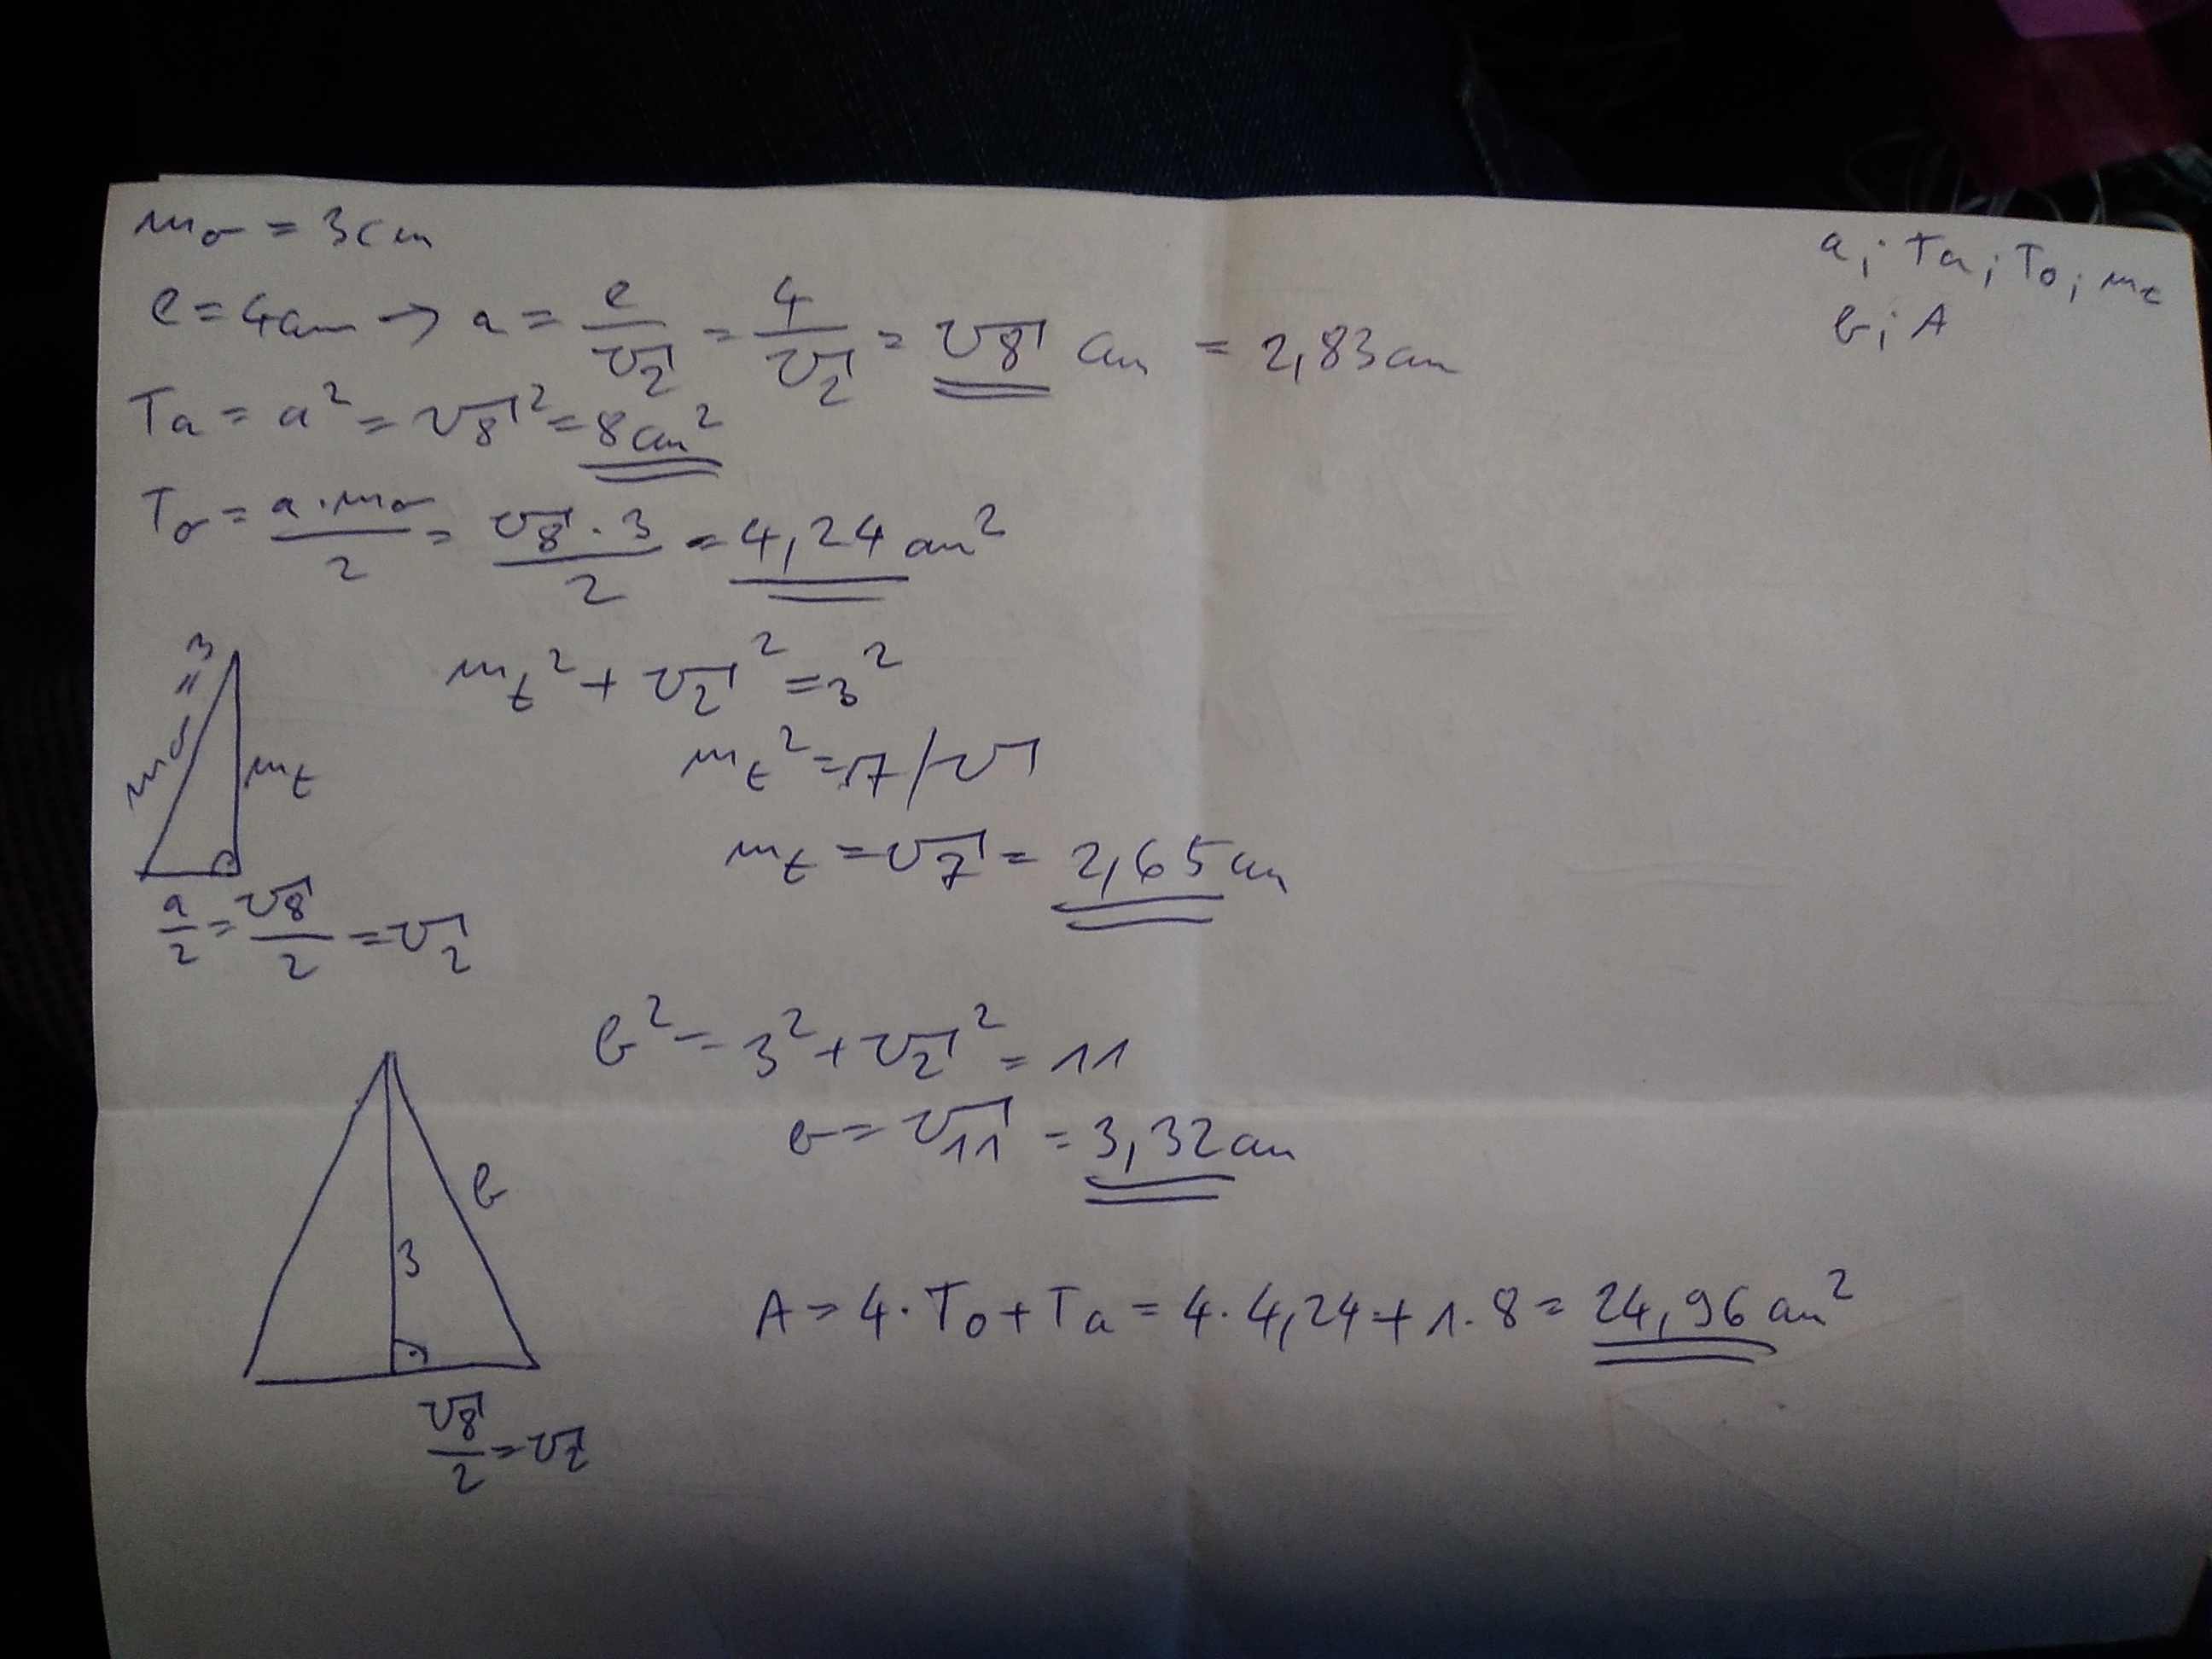 m_o = 3cm
a; Ta; To; m_t
b; A
e = 4cm → a = e/√2 = 4/√2 = √8 cm = 2,83cm
Ta = a² = √8² = 8cm²
To = a·m_o/2 = √8·3/2 = 4,24cm²
m_o = 3
m_t
a/2 = √8/2 = √2
m_t² + √2² = 3²
m_t² = 7 /√
m_t = √7 = 2,65cm
b² = 3² + √2² = 11
b = √11 = 3,32cm
b
3
√8/2 = √2
A = 4·To + Ta = 4·4,24 + 1·8 = 24,96cm²